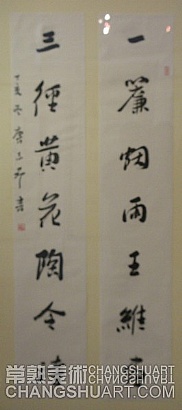 一簾烟雨王維畫
三徑黄花陶令
丁亥冬
常熟美術 CHANGSHUART
CHANGSHUART.COM